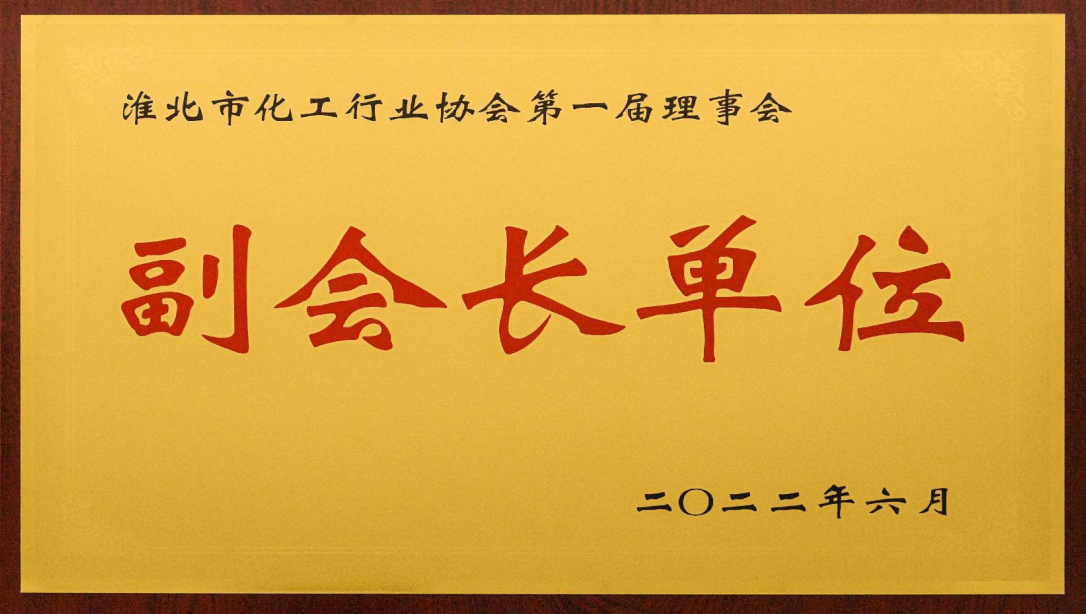 淮北市化工行业协会第一届理事会
副会长单位
二〇二二年六月